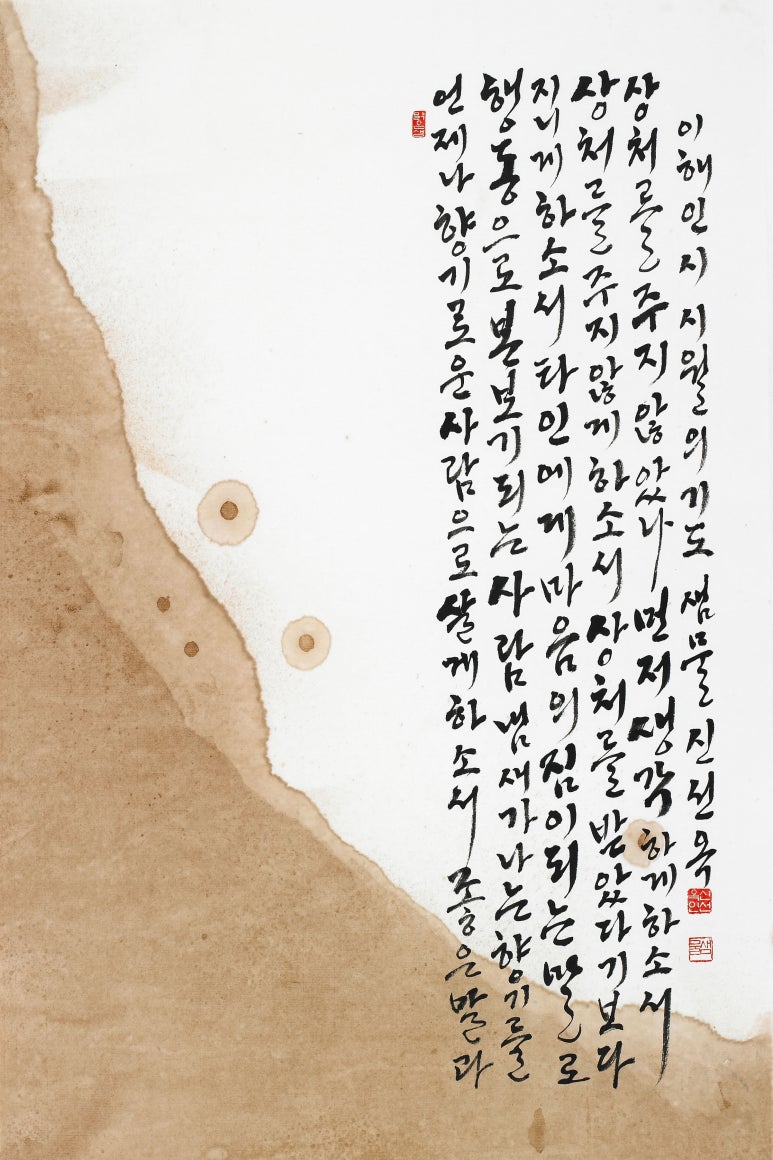 언제나 향기로운 사람으로 살게 하소서 좋은 말과
행동으로 본보기 되는 사람 냄새가 나는 향기를
지니게 하소서 타인에게 마음의 짐이 되는 말로
상처를 주지 않게 하소서 상처를 받았다기보다
상처를 주지 않았나 먼저 생각하게 하소서
이해인 시 시월의 기도 샘물 진선옥
샘물